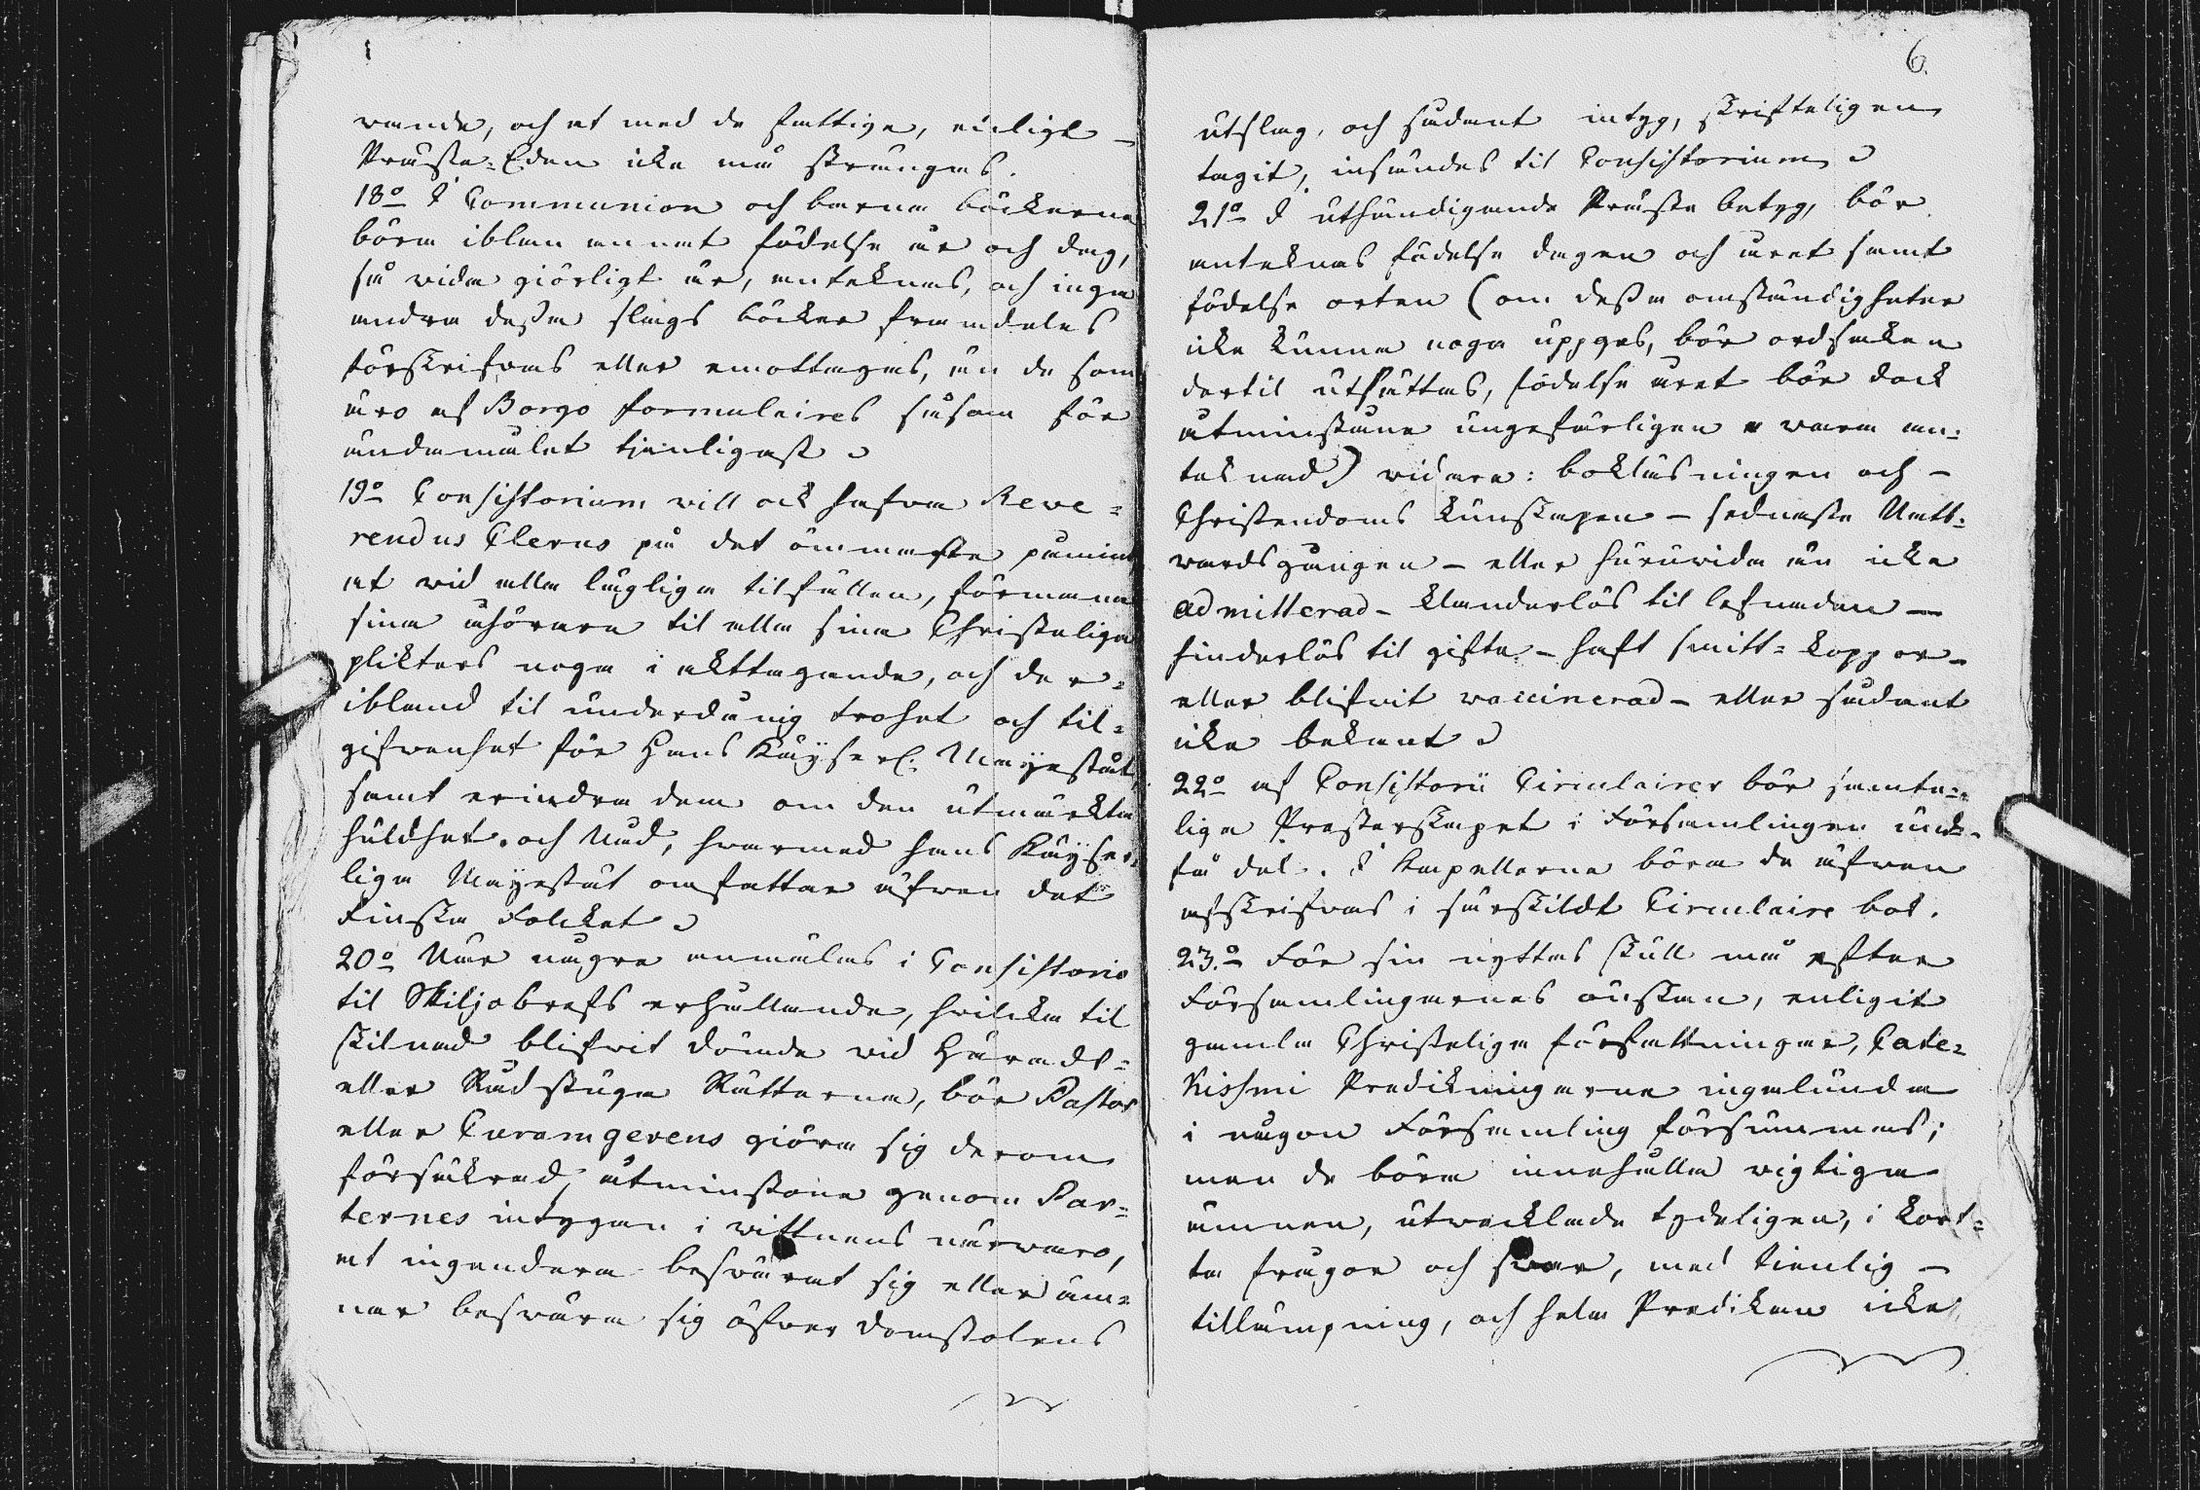 wande, och at med de fattige, enligt –
Präste-Eden icke må strängas.
18o I Communion och barna böckerna
böra ibland annat födelse år och dag,
så vida giörligt är, anteknas, och inga
andra dessa slags böcker framdeles
förskrifvas eller emottagas, än de som
äro af Borgo formulaires såsom för
ändamålet tjenligast
19o Consistorium will ock hafva Reve-
rendus Clerus på det ömmaste påmint
at vid alla läglige tilfällen, förmana
sina åhörare til alla sina Christeliga
plikters noga i akttagande, och der-
ibland til underdånig trohet och til-
gifvenhet för Hans Kayserl. Mayestät,
samt erindra dem om den utmärkta
huldhet och Nåd, hvarmed hans Kayser-
liga Mayestät omfattar äfven det
Finska Folcket
20o När några anmälas i Consistorio
til Skiljobrefs erhållande, hvilcka til
skilnad blifvit dömde vid Härads-
eller Rådstugu Rätterna, bör Pastor
eller Curamgerens giöra sig derom
försäkrad, åtminstone genom Par-
ternes intygan i vittnens närvaro,
at ingendera besvärat sig eller äm-
nar besvära sig öfver domstolens
6.
utslag, och sådant intyg, skrifteligen
tagit, insändes til Consistorium
21o I uthändigande Präste betyg, bör
anteknas födelse dagen och året samt
födelse orten (om dessa omständigheter
icke kunna noga uppges, bör ordsaken
dertil utsättas, födelse året bör dock
åtminstone ungefärligen vara an-
teknad) vidare: bokläsningen och –
Christendoms kunskapen – sednaste Natt-
vardsgången – eller huruvida än icke
admitterad – klanderlös til lefnaden –
hinderlös til gifte – haft smitt-koppor –
eller blifvit vaccinerad – eller sådant
icke bekant
22o af Consistorii Circulairer bör samte-
liga Presterskapet i Församlingen und-
få del. I Kapellerne böra de äfven
afskrifvas i särskildt Circulaire bok.
23.o För sin nyttas skull må efter
Församlingarnes önskan, enligit
gamla Christeliga författningar, Cate-
kismi Predikningarne ingalunda
i någon Församling försummas;
men de böra innehålla vigtiga
ämnen, utvecklade tydeligen, i kort-
ta frågor och svar, med tienlig –
tillämpning, och hela Predikan icke